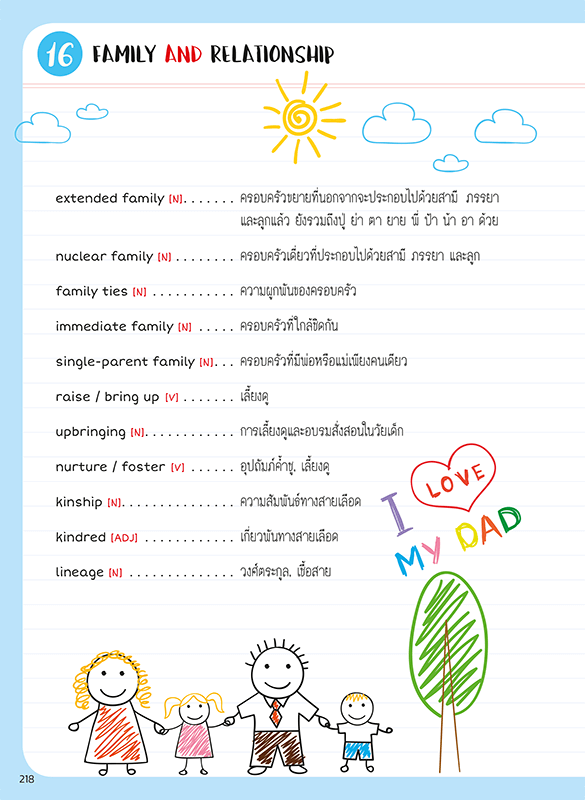 16 FAMILY AND RELATIONSHIP
extended family [N]. . . . . . . ครอบครัวขยายที่นอกจากจะประกอบไปด้วยสามี ภรรยา
และลูกแล้ว ยังรวมถึงปู่ ย่า ตา ยาย พี่ ป้า น้า อา ด้วย
nuclear family [N] . . . . . . . . ครอบครัวเดี่ยวที่ประกอบไปด้วยสามี ภรรยา และลูก
family ties [N] . . . . . . . . . . . ความผูกพันของครอบครัว
immediate family [N] . . . . . ครอบครัวที่ใกล้ชิดกัน
single-parent family [N]. . . ครอบครัวที่มีพ่อหรือแม่เพียงคนเดียว
raise / bring up [V] . . . . . . . เลี้ยงดู
upbringing [N]. . . . . . . . . . . . การเลี้ยงดูและอบรมสั่งสอนในวัยเด็ก
nurture / foster [V] . . . . . . อุปถัมภ์ค้ำชู, เลี้ยงดู
kinship [N]. . . . . . . . . . . . . . . ความสัมพันธ์ทางสายเลือด
kindred [ADJ] . . . . . . . . . . . . เกี่ยวพันทางสายเลือด
lineage [N] . . . . . . . . . . . . . . วงศ์ตระกูล, เชื้อสาย
I LOVE
MY DAD
218